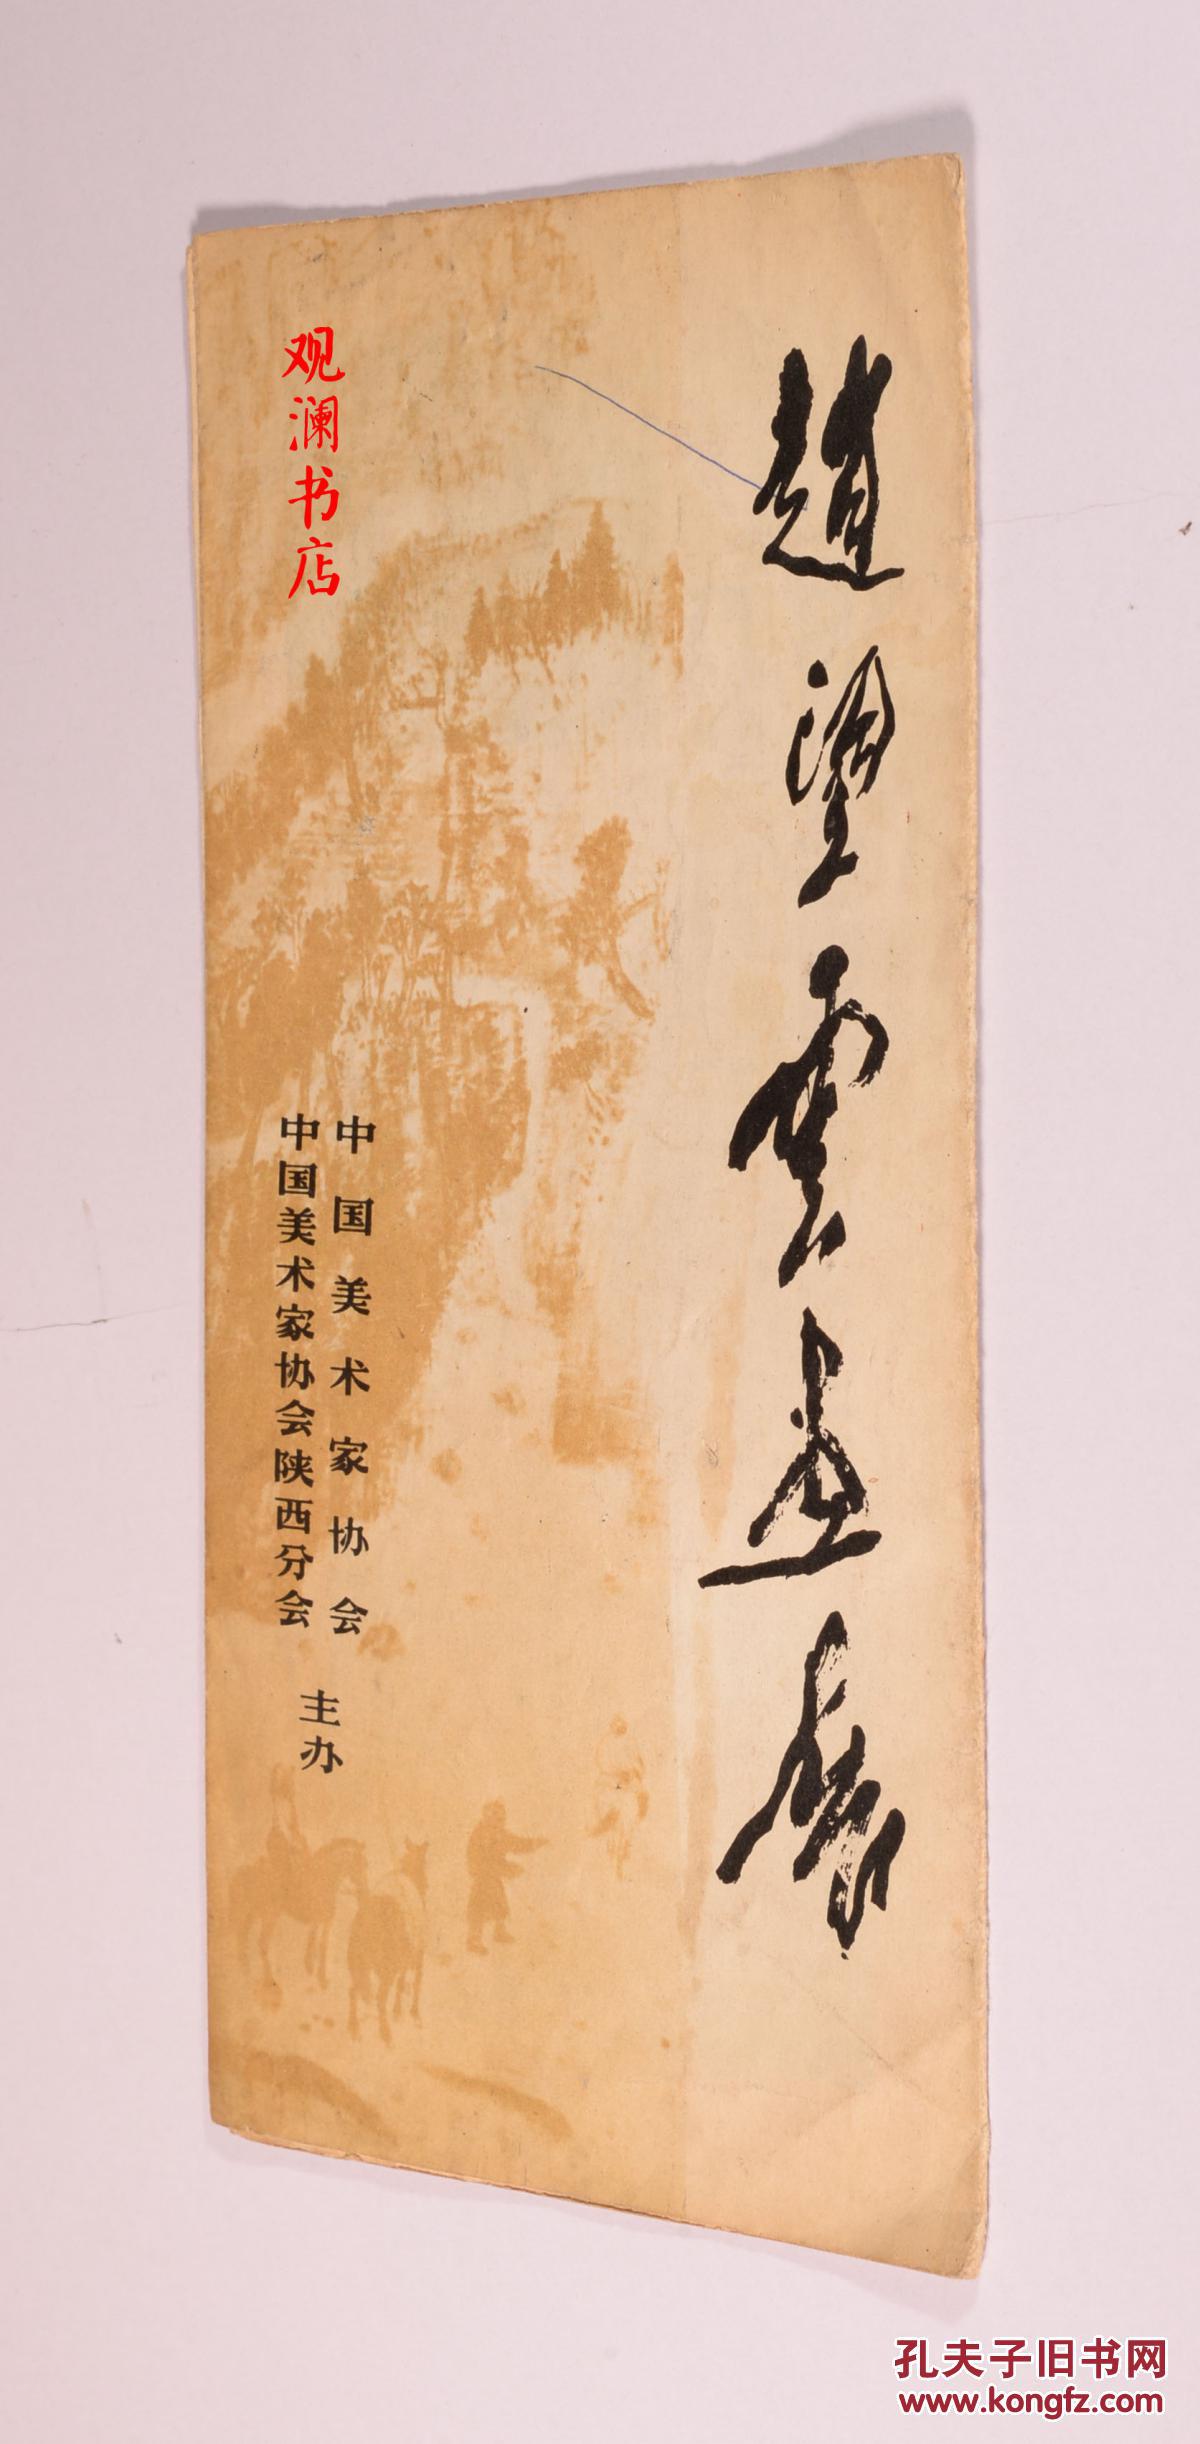 趙望雲画展
中国美术家协会
中国美术家协会陕西分会
主办
观澜书店
孔夫子旧书网
www.kongfz.com